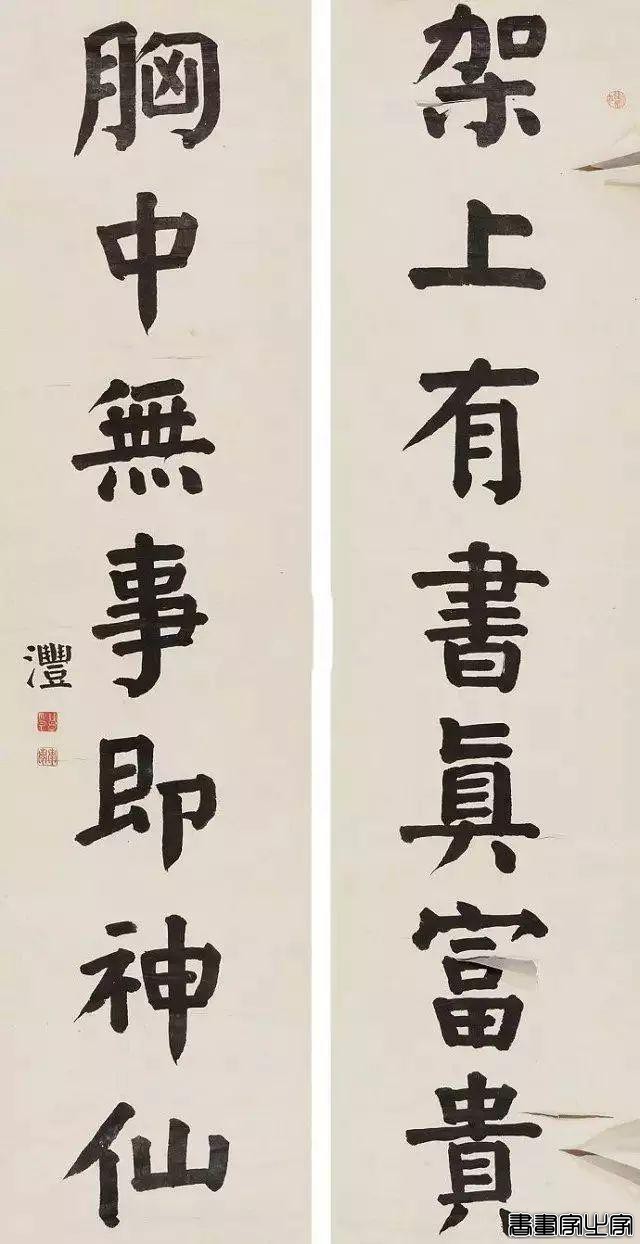 架上有書真富貴
胸中無事即神仙
灃
書畫家之家